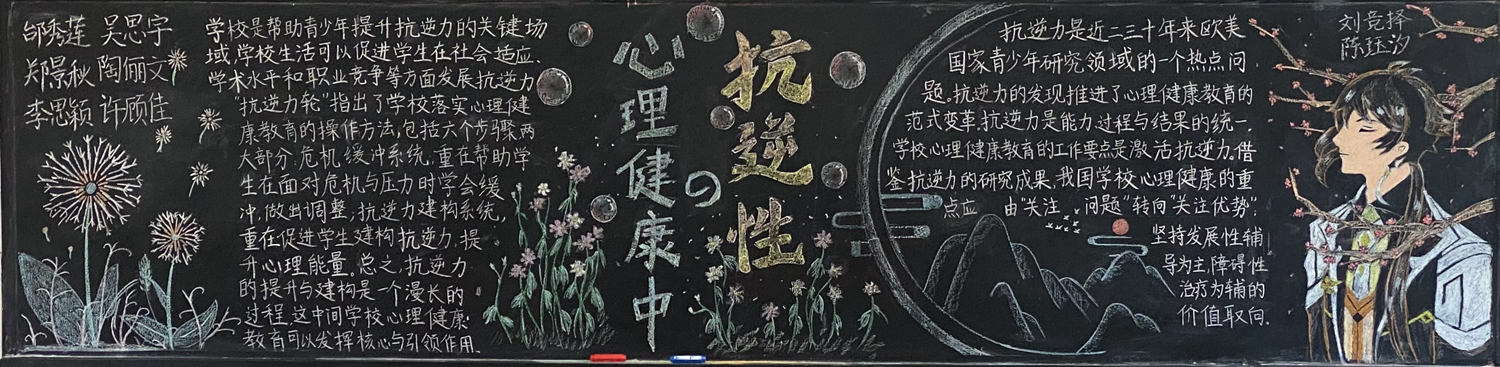 邰秀莲 吴思宇
郑景秋 陶俪文
李思颖 许顾佳
学校是帮助青少年提升抗逆力的关键场
域,学校生活可以促进学生在社会适应、
学术水平和职业竞争等方面发展抗逆力
“抗逆力轮”指出了学校落实心理健
康教育的操作方法,包括六个步骤、两
大部分.危机缓冲系统,重在帮助学
生在面对危机与压力时学会缓
冲,做出调整;抗逆力建构系统,
重在促进学生建构抗逆力,提
升心理能量。总之,抗逆力
的提升与建构是一个漫长的
过程,这中间学校心理健康
教育可以发挥核心与引领作用.
心理健康中
の
抗逆性
抗逆力是近二三十年来欧美
国家青少年研究领域的一个热点问
题。抗逆力的发现推进了心理健康教育的
范式变革.抗逆力是能力.过程与结果的统一.
学校心理健康教育的工作要点是激活抗逆力。借
鉴抗逆力的研究成果,我国学校心理健康的重
点应 由“关注 问题”转向“关注优势”.
坚持发展性辅
导为主,障碍性
治疗为辅的
价值取向.
刘竞择
陈珏汐